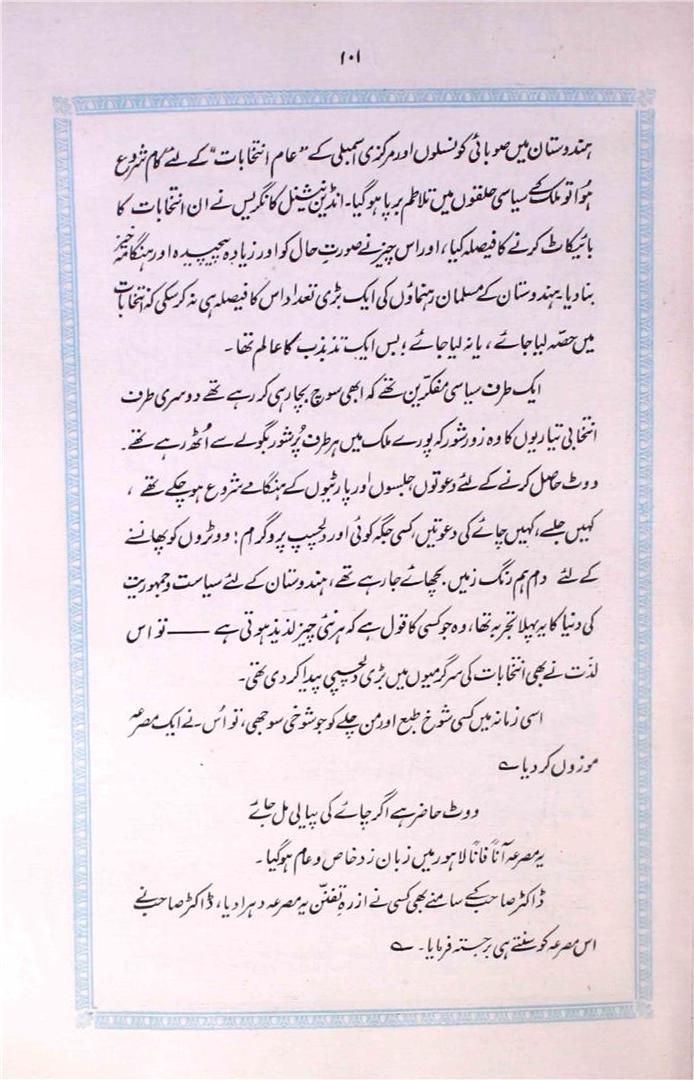 ۱۰۱
ہندوستان میں صوبائی کونسلوں اور مرکزی اسمبلی کے "عام انتخابات" کے لئے کام شروع
ہُوا تو ملک کے سیاسی حلقوں میں تلاطم برپا ہو گیا۔ انڈین نیشنل کانگریس نے ان انتخابات کا
بائیکاٹ کرنے کا فیصلہ کیا، اور اس چیز نے صورتِ حال کو اور زیادہ پیچیدہ اور ہنگامہ خیز
بنا دیا۔ ہندوستان کے مسلمان رہنماؤں کی ایک بڑی تعداد اس کا فیصلہ ہی نہ کر سکی کہ انتخابات
میں حصّہ لیا جائے، یا نہ لیا جائے؛ بس ایک تذبذب کا عالم تھا۔
ایک طرف سیاسی مفکّرین تھے کہ ابھی سوچ بچار ہی کر رہے تھے دوسری طرف
انتخابی تیاریوں کا وہ زور شور کہ پورے ملک میں ہر طرف پُر شور بگولے سے اُٹھ رہے تھے۔
ووٹ حاصل کرنے کے لئے دعوتوں، جلسوں اور پارٹیوں کے ہنگامے شروع ہو چکے تھے،
کہیں جلسے، کہیں چائے کی دعوتیں، کسی جگہ کوئی اور دلچسپ پروگرام؛ ووٹروں کو پھانسنے
کے لئے دام ہم رنگ زمیں بچھائے جا رہے تھے، ہندوستان کے لئے سیاست و جمہوریت
کی دنیا کا یہ پہلا تجربہ تھا، وہ جو کسی کا قول ہے کہ ہر نئی چیز لذیذ ہوتی ہے —— تو اس
لذّت نے بھی انتخابات کی سرگرمیوں میں بڑی دلچسپی پیدا کر دی تھی۔
اسی زمانہ میں کسی شوخ طبع اور من چلے کو جو شوخی سوجھی، تو اُس نے ایک مصرعہ
موزوں کر دیا ؎
ووٹ حاضر ہے اگر چائے کی پیالی مل جائے
یہ مصرعہ آناً فاناً لاہور میں زبان زد خاص و عام ہو گیا۔
ڈاکٹر صاحب کے سامنے بھی کسی نے ازرہِ تفنّن یہ مصرعہ دہرا دیا، ڈاکٹر صاحب نے
اس مصرعہ کو سنتے ہی برجستہ فرمایا۔ ؎